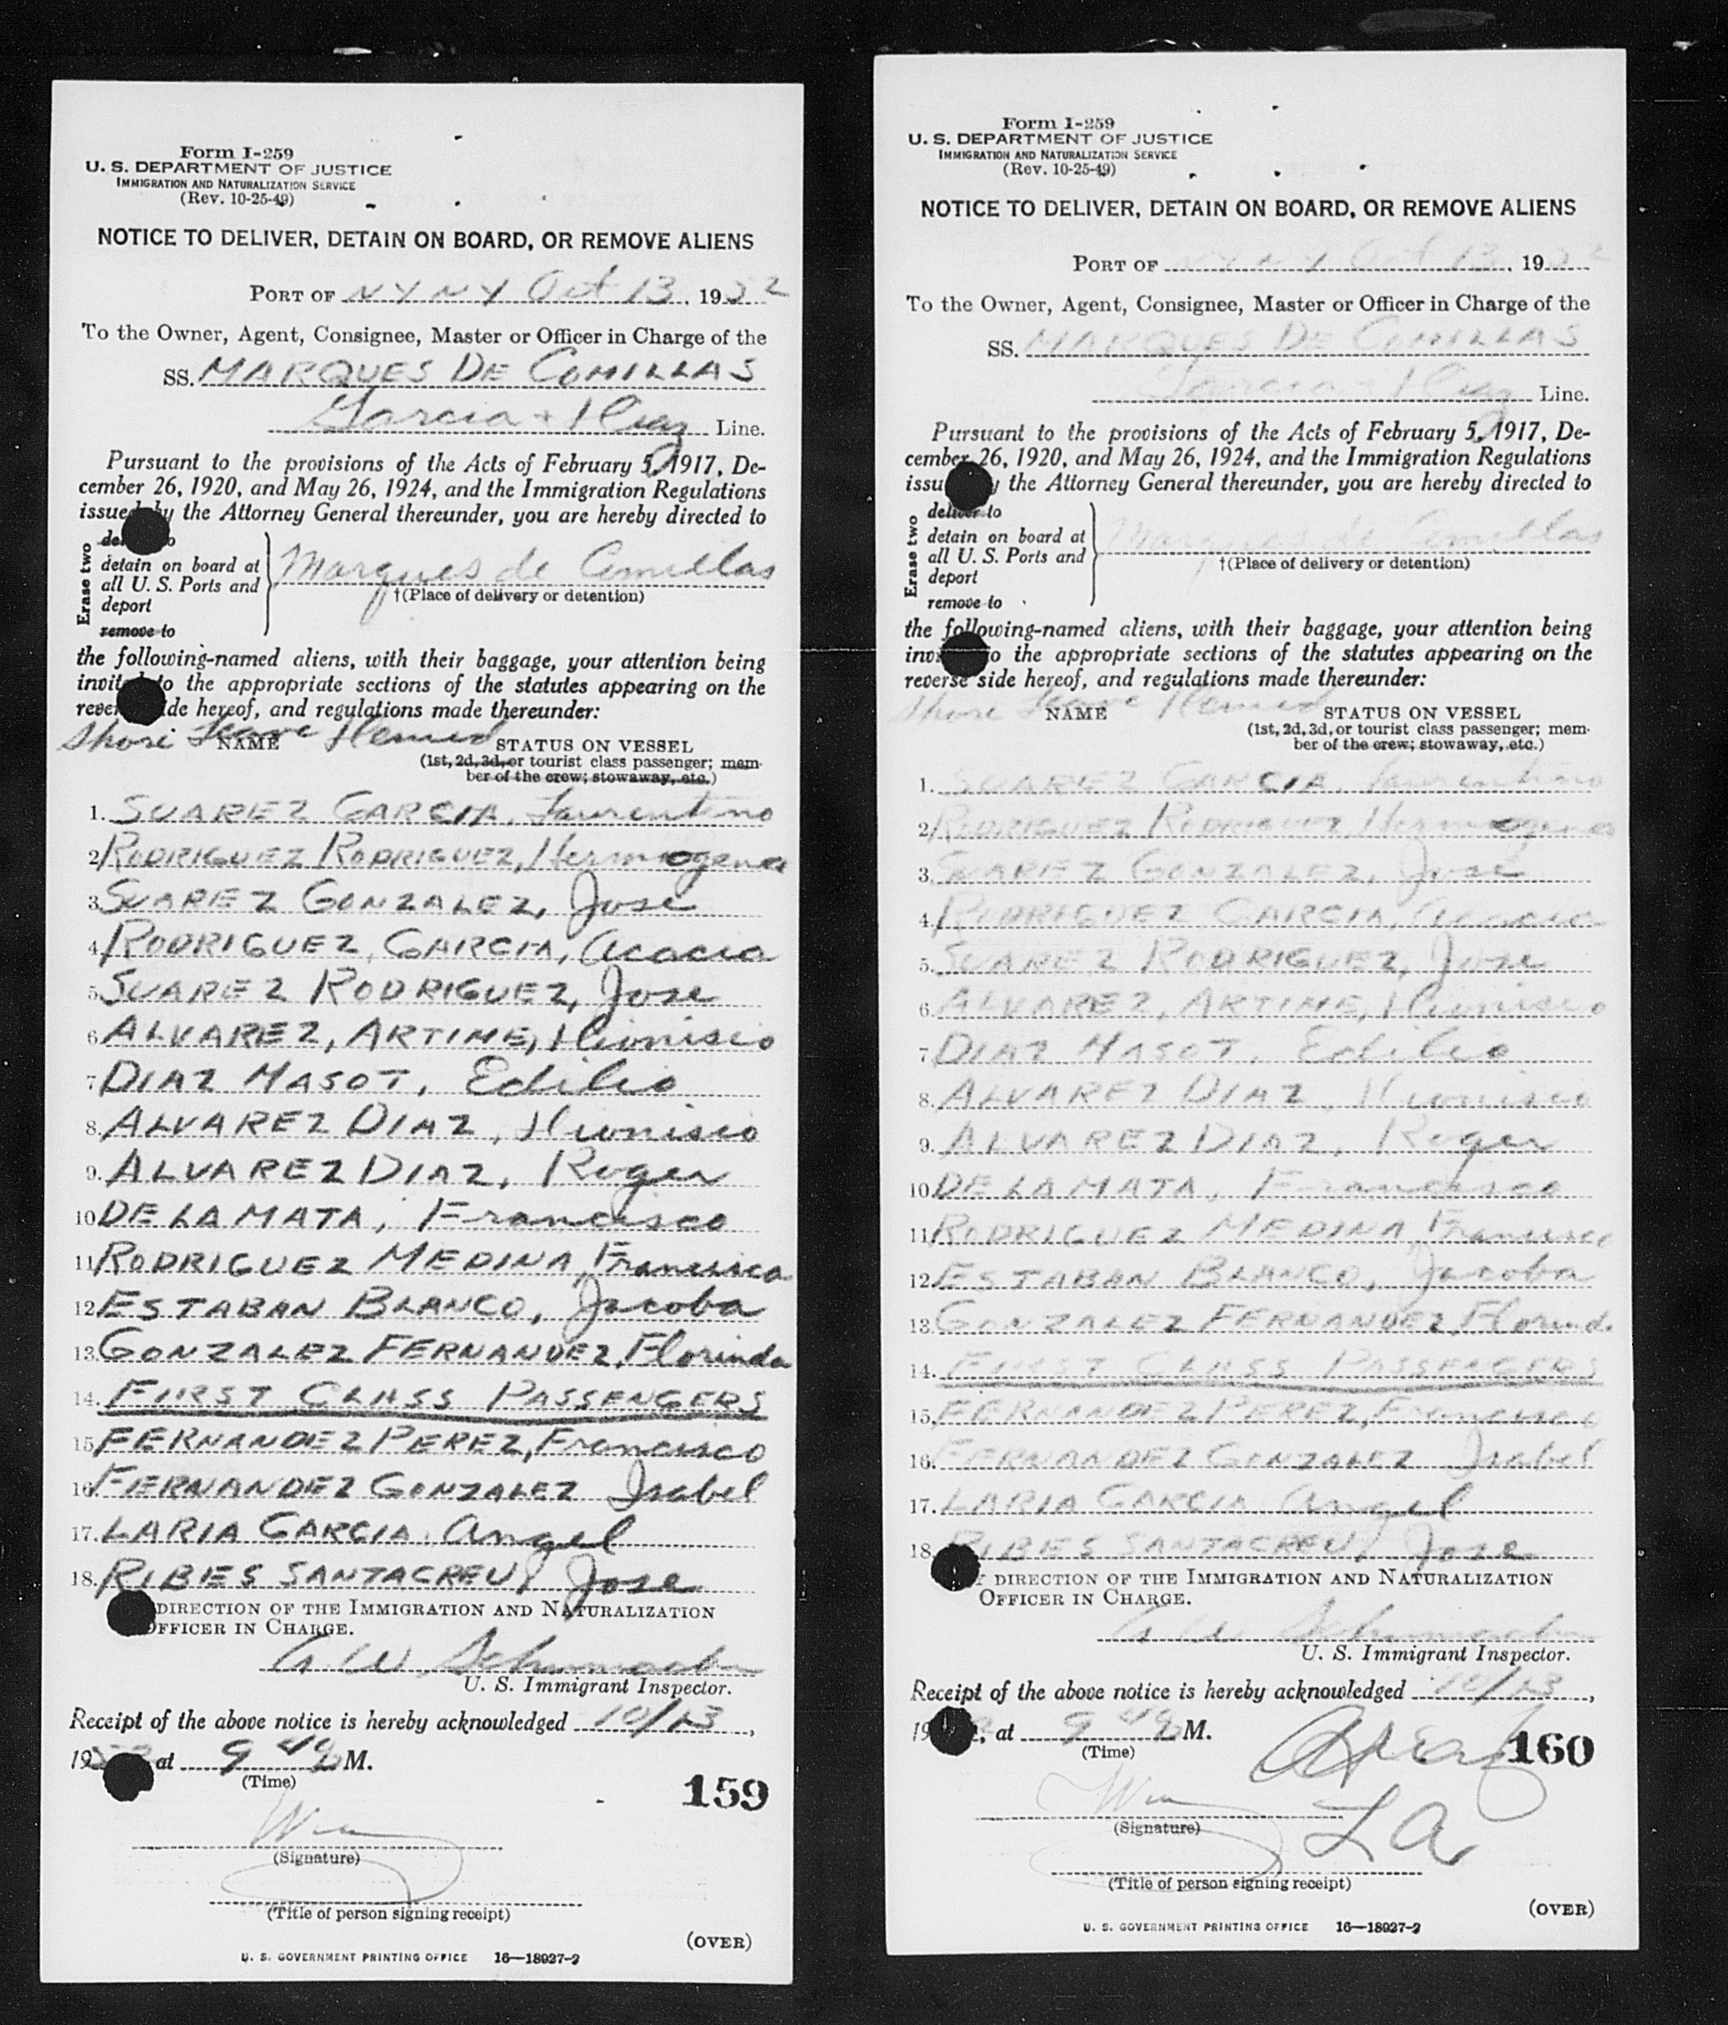 Form I-259
U. S. DEPARTMENT OF JUSTICE
IMMIGRATION AND NATURALIZATION SERVICE
(Rev. 10-25-49)
NOTICE TO DELIVER, DETAIN ON BOARD, OR REMOVE ALIENS
PORT OF NY NY Oct 13, 1952
To the Owner, Agent, Consignee, Master or Officer in Charge of the
SS. MARQUES DE COMILLAS
Garcia + Diaz Line.
Pursuant to the provisions of the Acts of February 5, 1917, De-
cember 26, 1920, and May 26, 1924, and the Immigration Regulations
issued by the Attorney General thereunder, you are hereby directed to
Erase two
detain on board at
all U. S. Ports and
deport
remove to
Marques de Comillas
†(Place of delivery or detention)
the following-named aliens, with their baggage, your attention being
invited to the appropriate sections of the statutes appearing on the
reverse side hereof, and regulations made thereunder:
Shore Leave Denied
NAME STATUS ON VESSEL
(1st, 2d, 3d, or tourist class passenger; mem-
ber of the crew; stowaway, etc.)
1. SUAREZ GARCIA, Laurentino
2. RODRIGUEZ RODRIGUEZ, Hermogenes
3. SUAREZ GONZALEZ, Jose
4. RODRIGUEZ, GARCIA, Acacia
5. SUAREZ RODRIGUEZ, Jose
6. ALVAREZ, ARTIME, Dionisio
7. DIAZ MASOT, Edilio
8. ALVAREZ DIAZ, Dionisio
9. ALVAREZ DIAZ, Roger
10. DE LA MATA, Francisco
11. RODRIGUEZ MEDINA, Francisca
12. ESTABAN BLANCO, Jacoba
13. GONZALEZ FERNANDEZ, Florinda
14. FIRST CLASS PASSENGERS
15. FERNANDEZ PEREZ, Francisco
16. FERNANDEZ GONZALEZ Isabel
17. LARIA GARCIA, Angel
18. RIBES SANTACREU, Jose
DIRECTION OF THE IMMIGRATION AND NATURALIZATION
OFFICER IN CHARGE.
A W Schumacher
U. S. Immigrant Inspector.
Receipt of the above notice is hereby acknowledged 10/13,
1952 at 9 40 M.
(Time)
159
(Signature)
(Title of person signing receipt)
(OVER)
U. S. GOVERNMENT PRINTING OFFICE 16—18927-2
Form I-259
U. S. DEPARTMENT OF JUSTICE
IMMIGRATION AND NATURALIZATION SERVICE
(Rev. 10-25-49)
NOTICE TO DELIVER, DETAIN ON BOARD, OR REMOVE ALIENS
PORT OF NY NY Oct 13, 1952
To the Owner, Agent, Consignee, Master or Officer in Charge of the
SS. MARQUES DE COMILLAS
Garcia + Diaz Line.
Pursuant to the provisions of the Acts of February 5, 1917, De-
cember 26, 1920, and May 26, 1924, and the Immigration Regulations
issued by the Attorney General thereunder, you are hereby directed to
Erase two
deliver to
detain on board at
all U. S. Ports and
deport
remove to
Marques de Comillas
†(Place of delivery or detention)
the following-named aliens, with their baggage, your attention being
invited to the appropriate sections of the statutes appearing on the
reverse side hereof, and regulations made thereunder:
Shore Leave Denied
NAME STATUS ON VESSEL
(1st, 2d, 3d, or tourist class passenger; mem-
ber of the crew; stowaway, etc.)
1. SUAREZ GARCIA, Laurentino
2. RODRIGUEZ RODRIGUEZ, Hermogenes
3. SUAREZ GONZALEZ, Jose
4. RODRIGUEZ GARCIA, Acacia
5. SUAREZ RODRIGUEZ, Jose
6. ALVAREZ, ARTIME, Dionisio
7. DIAZ MASOT, Edilio
8. ALVAREZ DIAZ, Dionisio
9. ALVAREZ DIAZ, Roger
10. DE LA MATA, Francisco
11. RODRIGUEZ MEDINA Francisca
12. ESTABAN BLANCO, Jacoba
13. GONZALEZ FERNANDEZ, Florinda
14. FIRST CLASS PASSENGERS
15. FERNANDEZ PEREZ, Francisco
16. FERNANDEZ GONZALEZ Isabel
17. LARIA GARCIA Angel
18. RIBES SANTACREU, Jose
DIRECTION OF THE IMMIGRATION AND NATURALIZATION
OFFICER IN CHARGE.
A W Schumacher
U. S. Immigrant Inspector.
Receipt of the above notice is hereby acknowledged 10/13,
1952, at 9 40 M.
(Time)
160
(Signature)
(Title of person signing receipt)
(OVER)
U. S. GOVERNMENT PRINTING OFFICE 16—18927-2